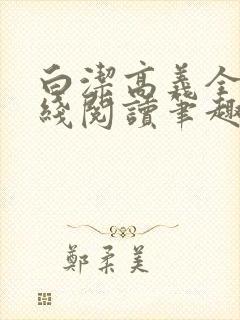 白潔高義全
綫閱讀筆趣
鄭柔美